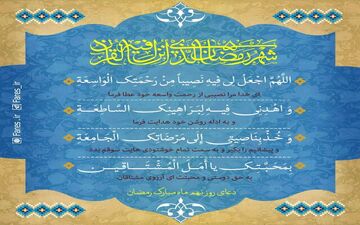 شهر رمضان الذی انزل فیه القرآن
اللَّهُمَّ اجْعَلْ لِی فِیهِ نَصِیباً مِنْ رَحْمَتِکَ الْوَاسِعَةِ
ای خدا مرا نصیبی از رحمت واسعه خود عطا فرما
وَ اهْدِنِی فِیهِ لِبَرَاهِینِکَ السَّاطِعَةِ
و به ادله روشن خود هدایت فرما
وَ خُذْ بِنَاصِیَتِی إِلَی مَرْضَاتِکَ الْجَامِعَةِ
و پیشانیم را بگیر و به سمت تمام خوشنودی هایت سوقم بده
بِمَحَبَّتِکَ یَا أَمَلَ الْمُشْتَاقِینَ
به حق دوستی و محبتت ای آرزوی مشتاقان
دعای روز نهم ماه مبارک رمضان
Fars_ir
Fars_ir